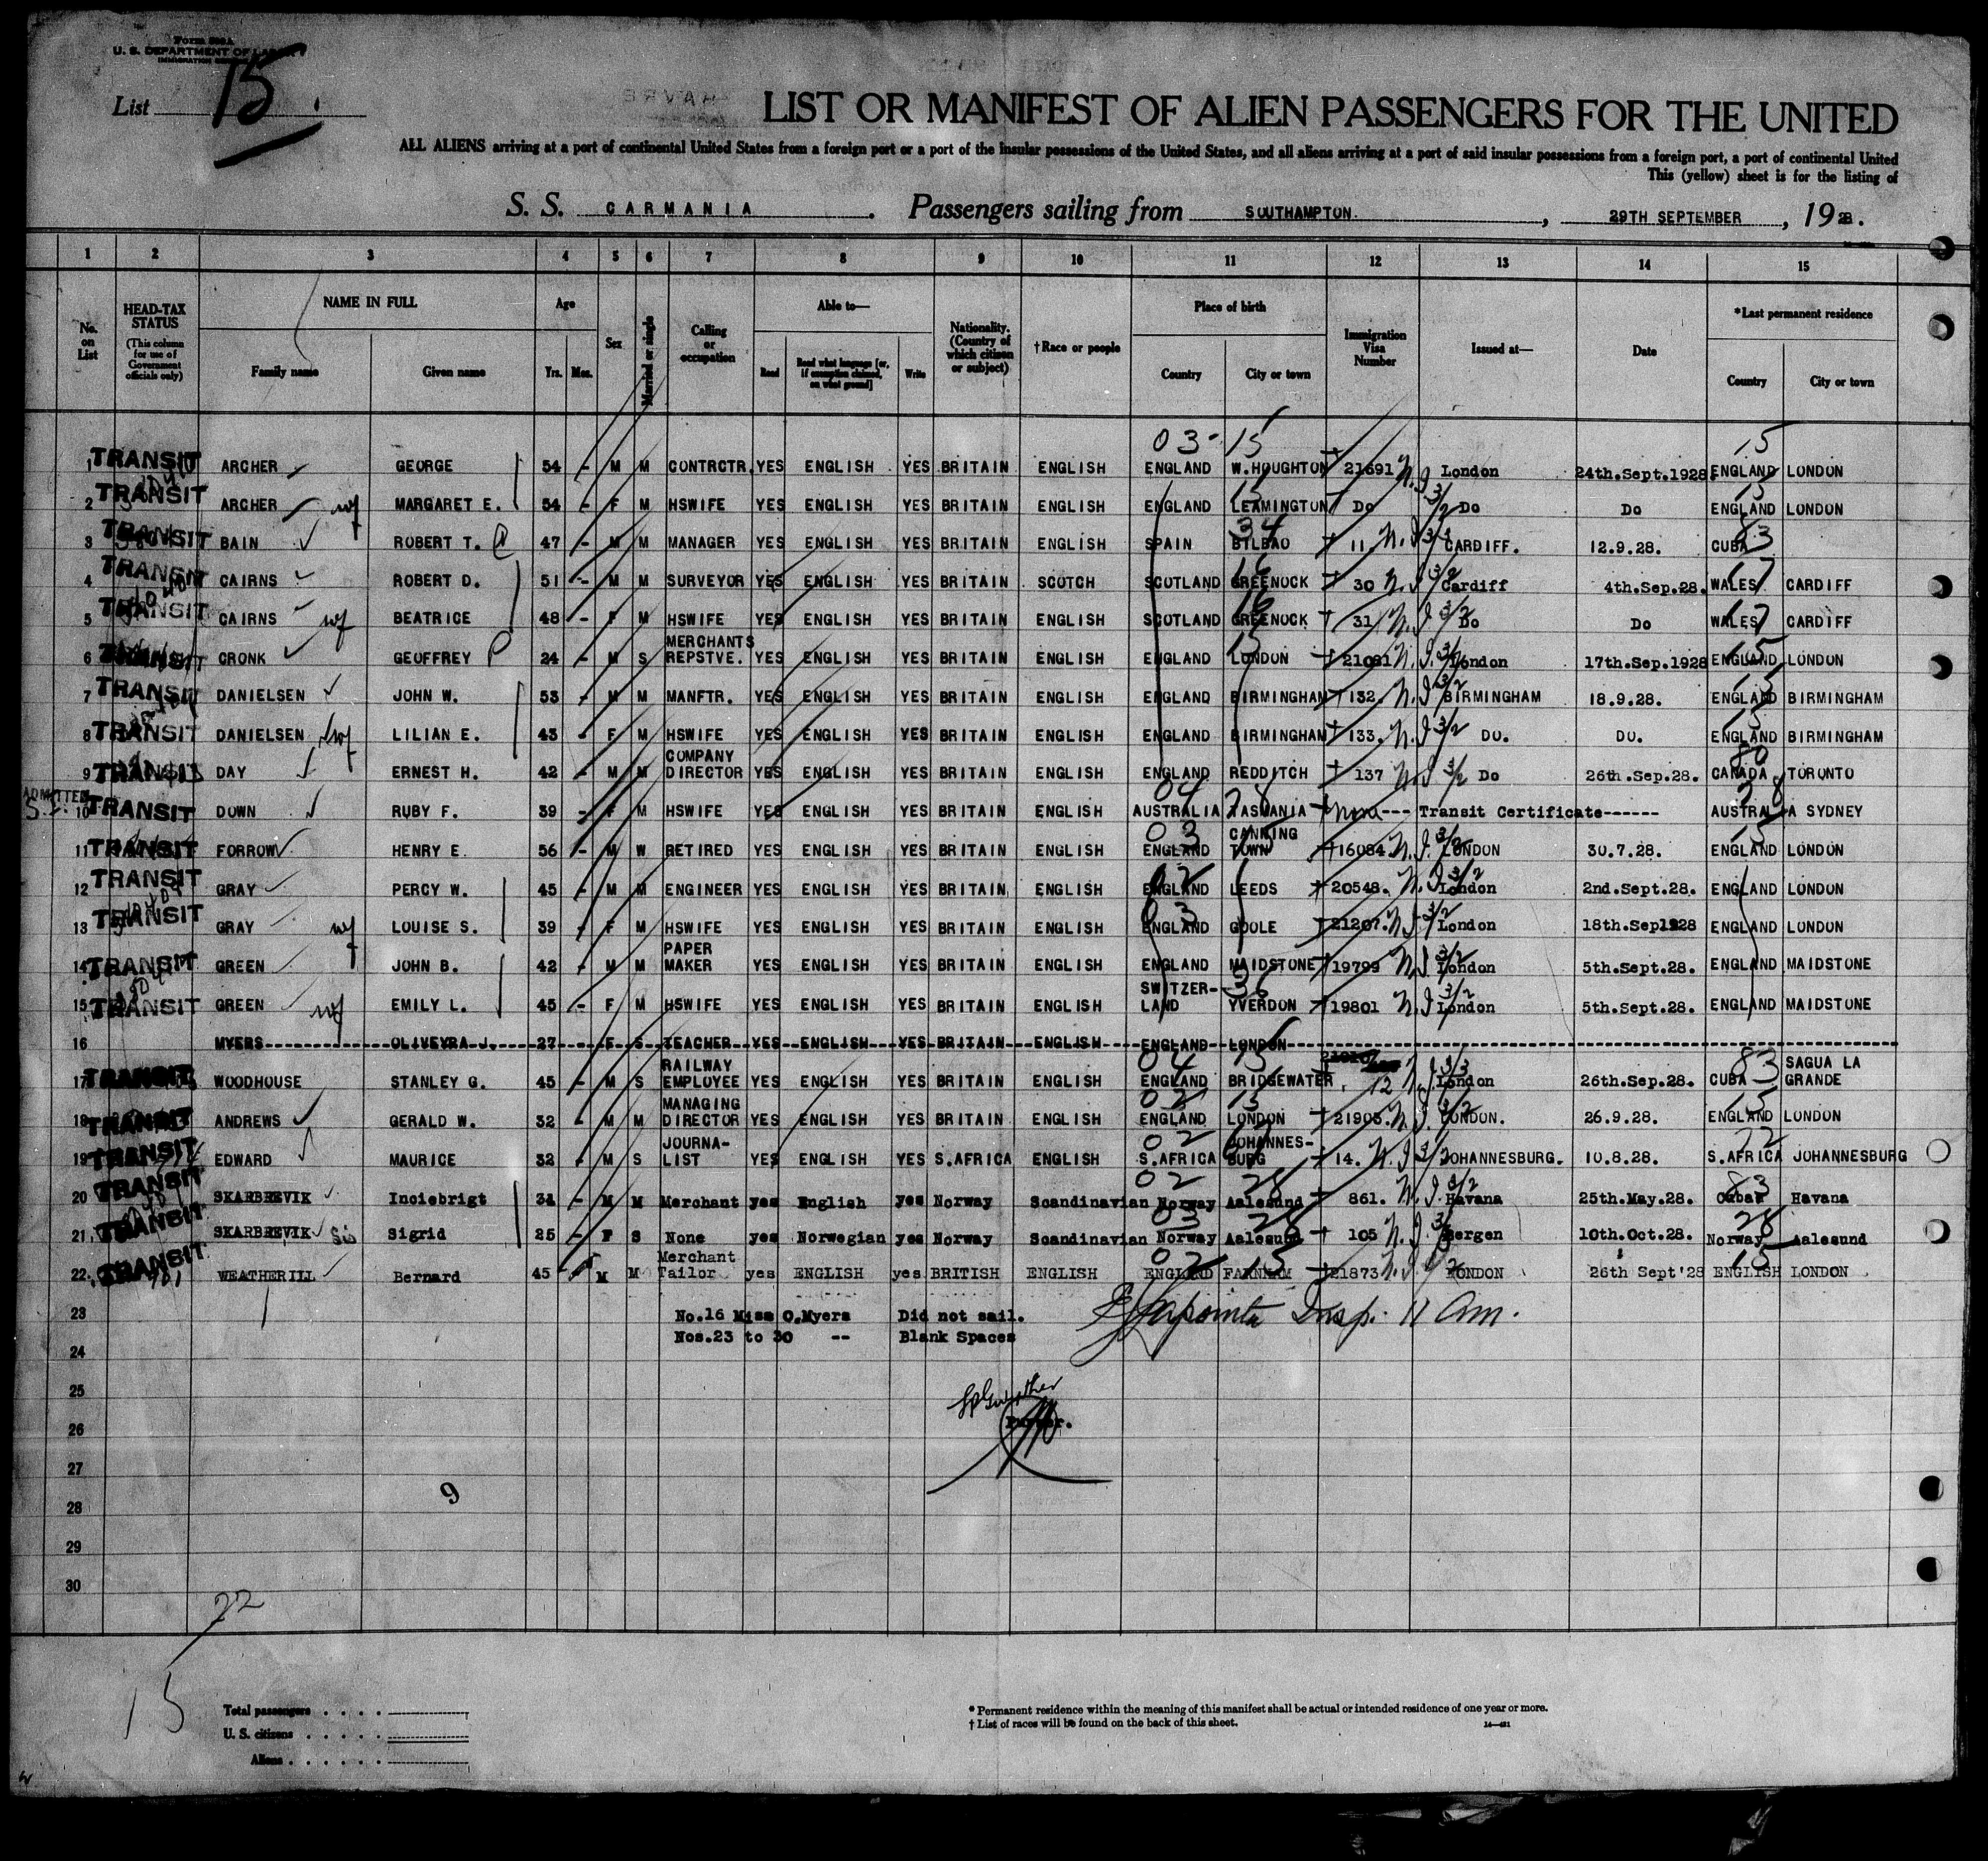 Form 500A
U. S. DEPARTMENT OF LABOR
IMMIGRATION SERVICE
List 15
LIST OR MANIFEST OF ALIEN PASSENGERS FOR THE UNITED
ALL ALIENS arriving at a port of continental United States from a foreign port or a port of the insular possessions of the United States, and all aliens arriving at a port of said insular possessions from a foreign port, a port of continental United
This (yellow) sheet is for the listing of
S. S. CARMANIA. Passengers sailing from SOUTHAMPTON., 29TH SEPTEMBER, 1928.
1 2 3 4 5 6 7 8 9 10 11 12 13 14 15
No. on List
HEAD-TAX STATUS (This column for use of Government officials only)
NAME IN FULL
Family name Given name
Age
Yrs. Mos.
Sex
Married or single
Calling or occupation
Able to—
Read Read what language [or, if exemption claimed, on what ground] Write
Nationality. (Country of which citizen or subject)
†Race or people
Place of birth
Country City or town
Immigration Visa Number
Issued at—
Date
*Last permanent residence
Country City or town
03- 15 15
1 TRANSIT ARCHER GEORGE 54 - M M CONTRCTR. YES ENGLISH YES BRITAIN ENGLISH ENGLAND W.HOUGHTON 21691 London 24th.Sept.1928 ENGLAND LONDON
2 TRANSIT ARCHER wf MARGARET E. 54 - F M HSWIFE YES ENGLISH YES BRITAIN ENGLISH ENGLAND LEAMINGTON Do Do Do ENGLAND LONDON
3 TRANSIT BAIN ROBERT T. 47 - M M MANAGER YES ENGLISH YES BRITAIN ENGLISH SPAIN BILBAO 11. CARDIFF. 12.9.28. CUBA
4 TRANSIT CAIRNS ROBERT D. 51 - M M SURVEYOR YES ENGLISH YES BRITAIN SCOTCH SCOTLAND GREENOCK 30 Cardiff 4th.Sep.28. WALES CARDIFF
5 TRANSIT CAIRNS wf BEATRICE 48 - F M HSWIFE YES ENGLISH YES BRITAIN ENGLISH SCOTLAND GREENOCK 31 Do Do WALES CARDIFF
6 TRANSIT CRONK GEOFFREY 24 - M S MERCHANTS REPSTVE. YES ENGLISH YES BRITAIN ENGLISH ENGLAND LONDON 21081 London 17th.Sep.1928 ENGLAND LONDON
7 TRANSIT DANIELSEN JOHN W. 53 - M M MANFTR. YES ENGLISH YES BRITAIN ENGLISH ENGLAND BIRMINGHAM 132. BIRMINGHAM 18.9.28. ENGLAND BIRMINGHAM
8 TRANSIT DANIELSEN wf LILIAN E. 43 - F M HSWIFE YES ENGLISH YES BRITAIN ENGLISH ENGLAND BIRMINGHAM 133. DO. DO. ENGLAND BIRMINGHAM
9 TRANSIT DAY ERNEST H. 42 - M M COMPANY DIRECTOR YES ENGLISH YES BRITAIN ENGLISH ENGLAND REDDITCH 137 Do 26th.Sep.28. CANADA TORONTO
ADMITTED
10 TRANSIT DOWN RUBY F. 39 - F M HSWIFE YES ENGLISH YES BRITAIN ENGLISH AUSTRALIA TASMANIA None--- Transit Certificate------ AUSTRALIA SYDNEY
11 TRANSIT FORROW HENRY E. 56 - M W RETIRED YES ENGLISH YES BRITAIN ENGLISH ENGLAND CANNING TOWN 16084. LONDON 30.7.28. ENGLAND LONDON
12 TRANSIT GRAY PERCY W. 45 - M M ENGINEER YES ENGLISH YES BRITAIN. ENGLISH ENGLAND LEEDS 20548. London 2nd.Sept.28. ENGLAND LONDON
13 TRANSIT GRAY wf LOUISE S. 39 - F M HSWIFE YES ENGLISH YES BRITAIN ENGLISH ENGLAND GOOLE 21207. London 18th.Sep1928 ENGLAND LONDON
14 TRANSIT GREEN JOHN B. 42 - M M PAPER MAKER YES ENGLISH YES BRITAIN ENGLISH ENGLAND MAIDSTONE 19799 London 5th.Sept.28. ENGLAND MAIDSTONE
15 TRANSIT GREEN wf EMILY L. 45 - F M HSWIFE YES ENGLISH YES BRITAIN ENGLISH SWITZER-LAND YVERDON 19801 London 5th.Sept.28. ENGLAND MAIDSTONE
16 MYERS OLIVEYRA J. 27 - F S TEACHER YES ENGLISH YES BRITAIN ENGLISH ENGLAND LONDON
17 TRANSIT WOODHOUSE STANLEY G. 45 - M S RAILWAY EMPLOYEE YES ENGLISH YES BRITAIN ENGLISH ENGLAND BRIDGEWATER. 12 London 26th.Sep.28. CUBA SAGUA LA GRANDE
18 TRANSIT ANDREWS GERALD W. 32 - M M MANAGING DIRECTOR YES ENGLISH YES BRITAIN ENGLISH ENGLAND LONDON 21903. LONDON. 26.9.28. ENGLAND LONDON
19 TRANSIT EDWARD MAURICE 32 - M S JOURNA-LIST YES ENGLISH YES S.AFRICA ENGLISH S.AFRICA JOHANNES-BURG 14. JOHANNESBURG. 10.8.28. S.AFRICA JOHANNESBURG
20 TRANSIT SKARBREVIK Inciebrigt 31 - M M Merchant yes English yes Norway Scandinavian Norway Aalesund 861. Havana 25th.May.28. Cuba Havana
21 TRANSIT SKARBREVIK Sis Sigrid 25 - F S None yes Norwegian yes Norway Scandinavian Norway Aalesund 105 Bergen 10th.Oct.28. Norway Aalesund
22 TRANSIT WEATHERILL Bernard 45 M M Merchant Tailor yes ENGLISH yes BRITISH ENGLISH ENGLAND FARNHAM 21873 LONDON 26th Sept'28 ENGLISH LONDON
23 No.16 Miss O.Myers Did not sail. Insp. 11 Am.
Nos.23 to 30 -- Blank Spaces
24
25
26 Purser.
27
28 9
29
30
22
15
Total passengers . . . .
U. S. citizens . . . . .
Aliens . . . . . .
* Permanent residence within the meaning of this manifest shall be actual or intended residence of one year or more.
† List of races will be found on the back of this sheet.